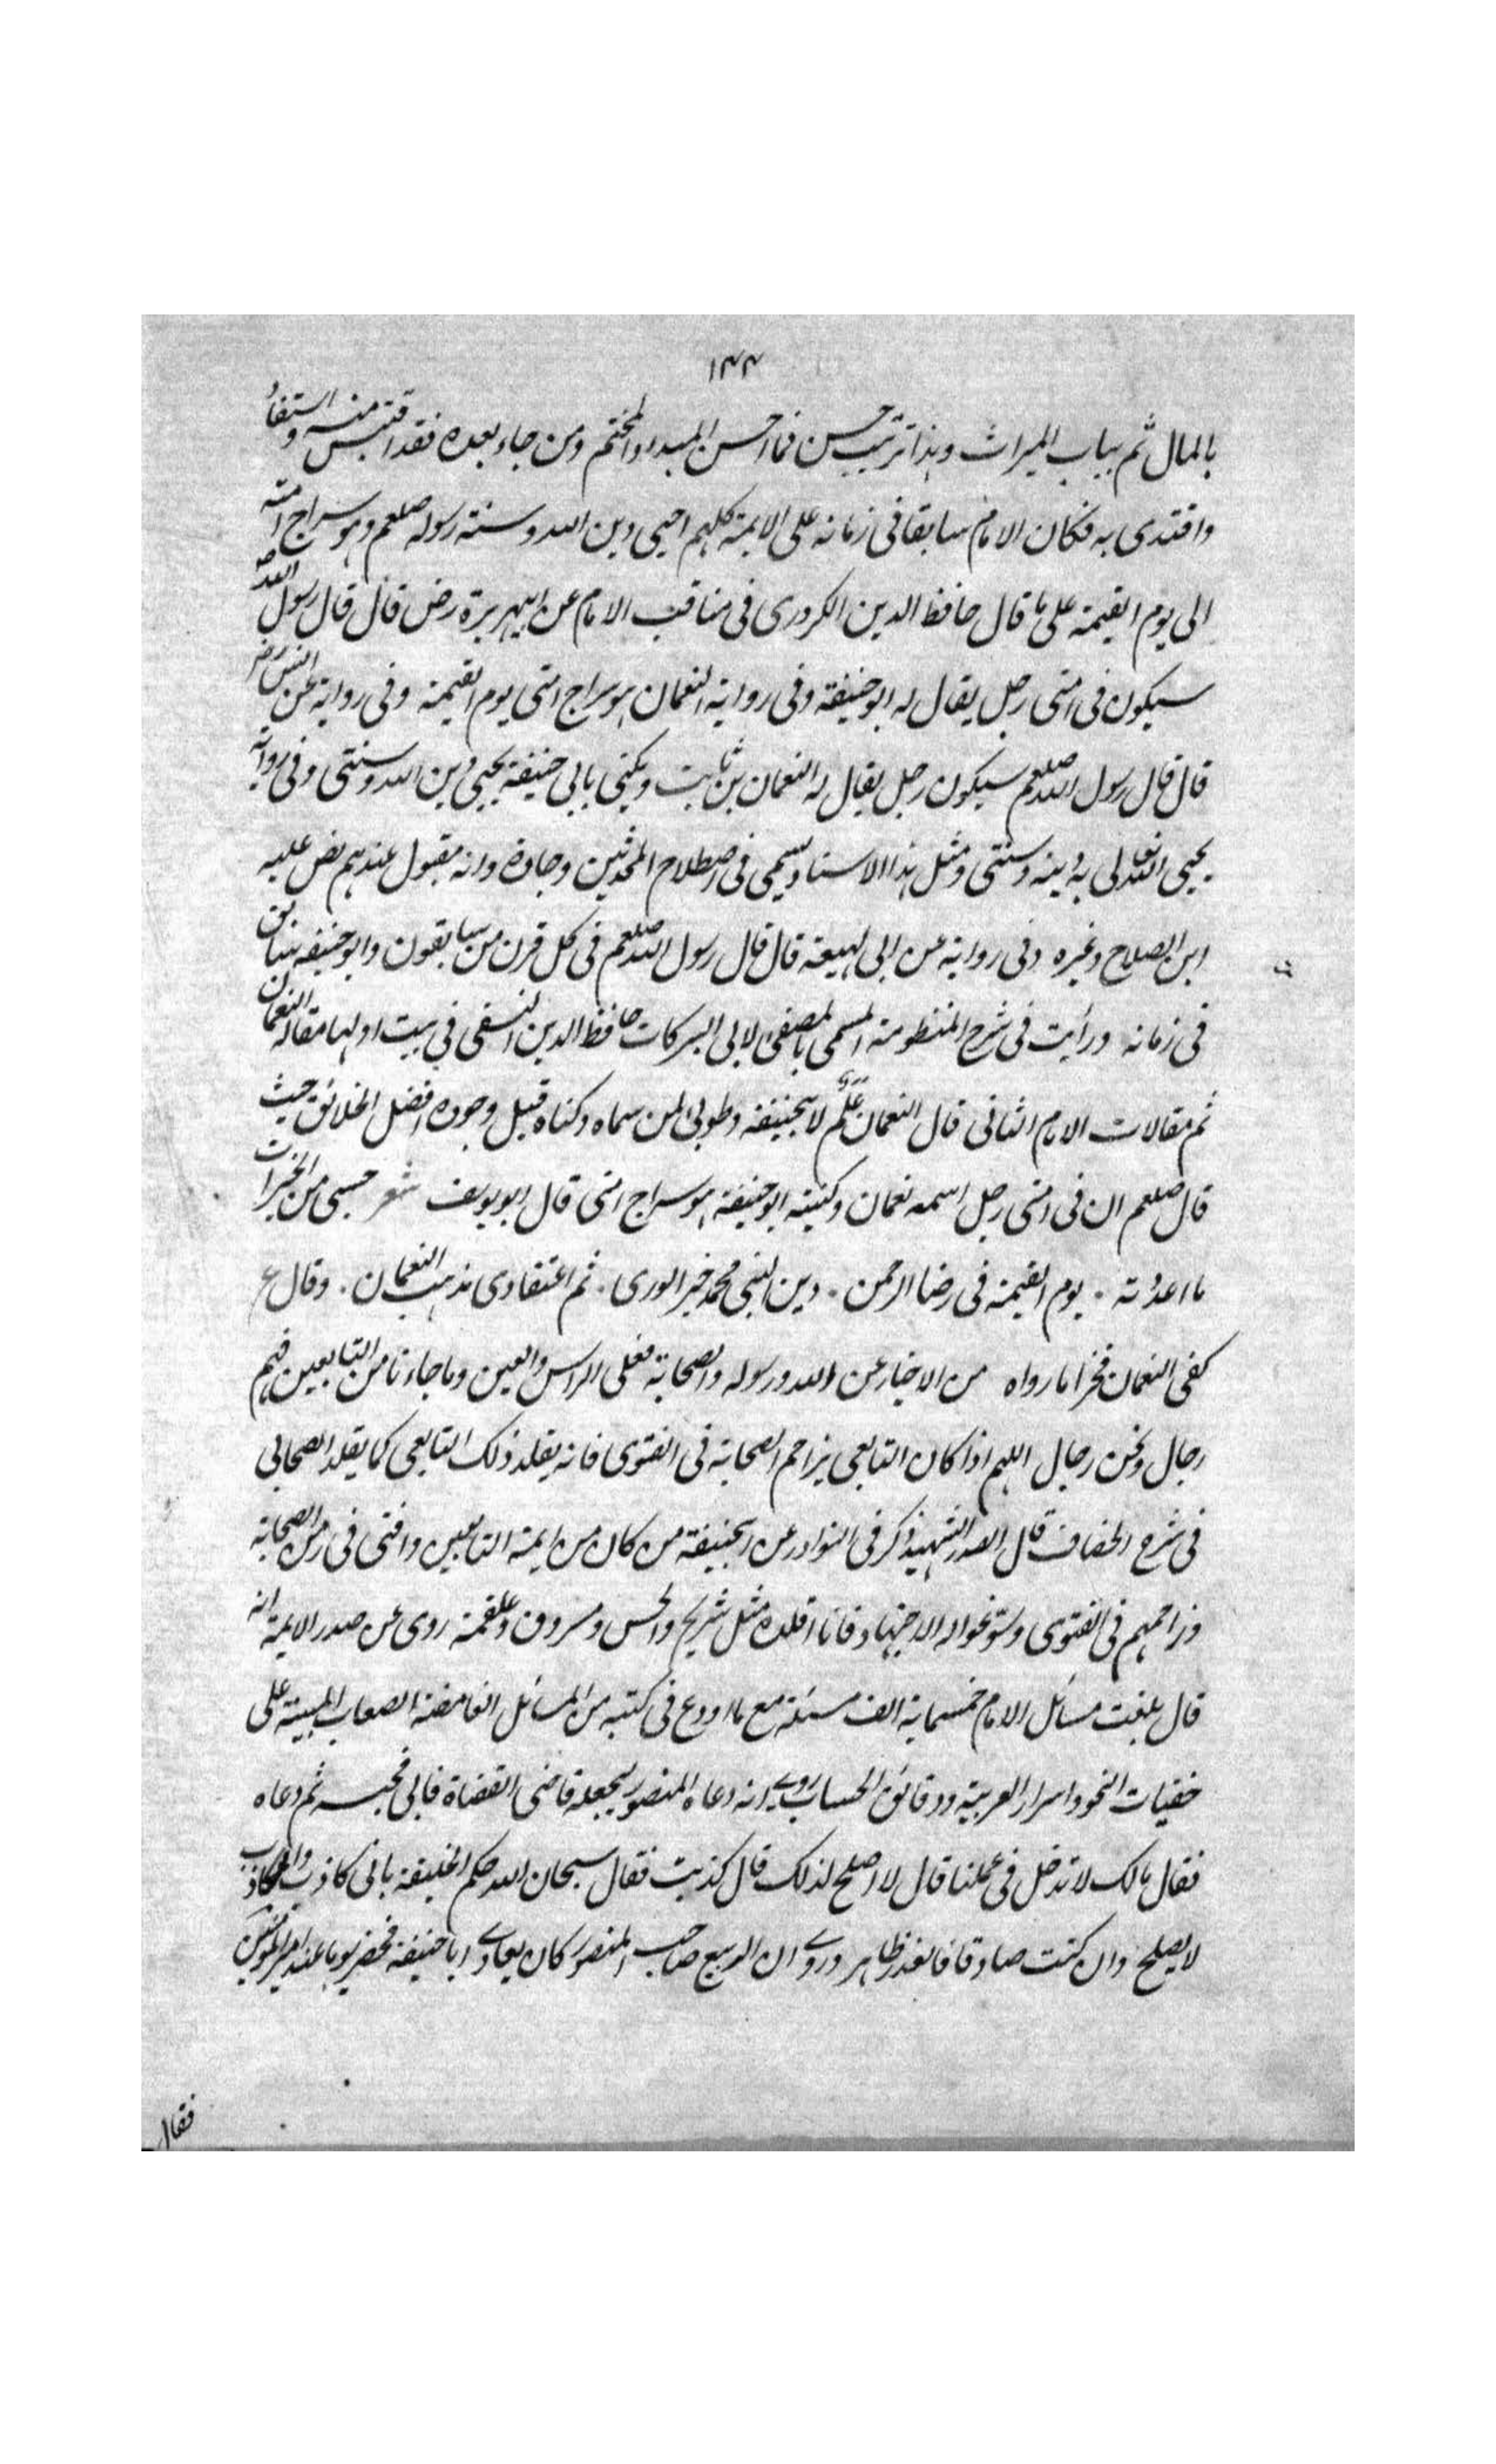 ١٤٤
بالمال ثم بباب الميراث وهذا ترتيب حسن فما احسن المبدا والمختم ومن جاء بعده فقد اقتبس منه واستفاد
واقتدى به فكان الامام سابقا فى زمانه على الايمة كلهم احيى دين الله وسنته رسوله صلعم وهو سراج امته
الى يوم القيمة على ما قال حافظ الدين الكردرى فى مناقب الامام عن ابيهريرة رض قال قال رسول الله ص
سيكون فى امتى رجل يقال له ابو حنيفة وفى رواية النعمان هو سراج امتى يوم القيمة وفى رواية عن انس رض
قال قال رسول الله صلعم سيكون رجل يقال له النعمان بن ثابت ويكنى بابى حنيفة يحيى دين الله وسنتى وفى رواية
يحيى الله تعالى به دينه وسنتى ومثل هذا الاسناد يسمى فى اصطلاح المحدثين وجادة وانه مقبول عندهم نص عليه
ابن الصلاح وغيره وفى رواية عن ابى لهيعة قال قال رسول الله صلعم فى كل قرن من سابقون وابو حنيفه سابق
فى زمانه ورأيت فى شرح المنظومة المسمى بالمصفى لابى البركات حافظ الدين النسفى فى بيت اولها مقالة النعمان
ثم مقالات الامام الثانى قال النعمان علم لابيحنيفة وطوبى لمن سماه وكناه قبل وجوده افضل الخلائق حيث
قال صلعم ان فى امتى رجل اسمه نعمان وكنيته ابو حنيفة هو سراج امتى قال ابو يوسف شعر حسبى من الخيرات
ما اعددته . يوم القيمة فى رضا الرحمن . دين النبى محمد خير الورى . ثم اعتقادى مذهب النعمان . وقال ع
كفى النعمان فخرا ما رواه من الاخبار عن الله ورسوله والصحابة فعلى الراس والعين وما جاءنا من التابعين فهم
رجال ونحن رجال اللهم اذا كان التابعى يزاحم الصحابة فى الفتوى فانه يقلد ذلك التابعى كما يقلد الصحابى
فى شرح الخصاف قال الصدر الشهيد ذكر فى النوادر عن ابيحنيفة من كان من ايمة التابعين وافتى فى زمن الصحابة
وزاحمهم فى الفتوى وسوغوا له الاجتهاد فانا اقلده مثل شريح والحسن ومسروق وعلقمة روى عن صدر الايمة انه
قال بلغت مسائل الامام خمسماية الف مسئلة مع ما اودع فى كتبه من المسائل الغامضة الصعاب المبنية على
خفيات النحو واسرار العربية ودقائق الحساب روى انه دعاه المنصور ليجعله قاضى القضاة فابى فحبسه ثم دعاه
فقال مالك لا تدخل فى عملنا قال لا اصلح لذلك قال كذبت فقال سبحان الله حكم الخليفة بانى كاذب والكاذب
لا يصلح وان كنت صادقا فالعذر ظاهر وروى ان الربيع صاحب المنصور كان يعادى ابا حنيفة فحضر يوما عند امير المؤمنين
فقال